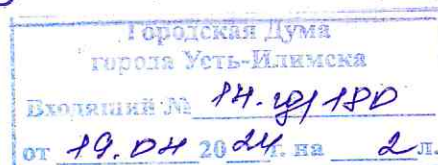 Городская Дума
города Усть-Илимска
Входящий № 14.гд/180
от 19.04 2024г. на 2 л.